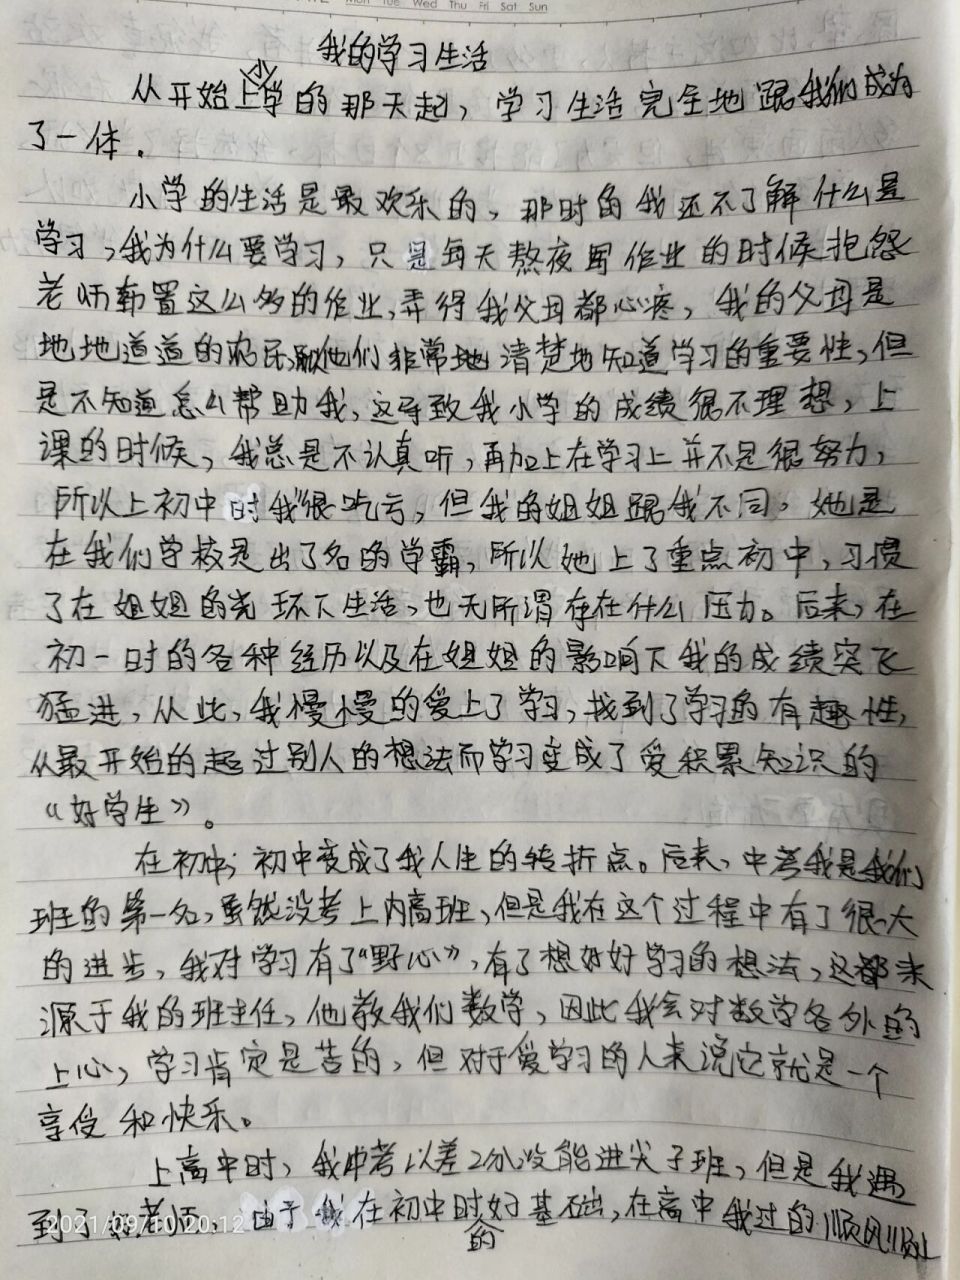 Mon Tue Wed Thu Fri Sat Sun
我的学习生活
从开始上小学的那天起，学习生活完全地跟我们成为
了一体．
小学的生活是最欢乐的，那时的我还不了解什么是
学习，我为什么要学习，只是每天熬夜写作业的时候抱怨
老师布置这么多的作业，弄得我父母都心疼，我的父母是
地地道道的农民，他们非常地清楚地知道学习的重要性，但
是不知道怎么帮助我，这导致我小学的成绩很不理想，上
课的时候，我总是不认真听，再加上在学习上并不是很努力，
所以上初中时我很吃亏，但我的姐姐跟我不同，她是
在我们学校是出了名的学霸，所以她上了重点初中，习惯
了在姐姐的光环下生活，也无所谓存在什么压力。后来，在
初一时的各种经历以及在姐姐的影响下我的成绩突飞
猛进，从此，我慢慢的爱上了学习，找到了学习的有趣性，
从最开始的超过别人的想法而学习变成了爱积累知识的
《好学生》。
在初中，初中变成了我人生的转折点。后来，中考我是我们
班的第一名，虽然没考上内高班，但是我在这个过程中有了很大
的进步，我对学习有了“野心》，有了想好好学习的想法，这都来
源于我的班主任，他教我们数学，因此我会对数学各外的
上心，学习肯定是苦的，但对于爱学习的人来说它就是一个
享受和快乐。
上高中时，我中考以差2分没能进尖子班，但是我遇
到了好老师．由于我在初中时的好基础，在高中我过的顺风顺水
2021/09/10 20:12